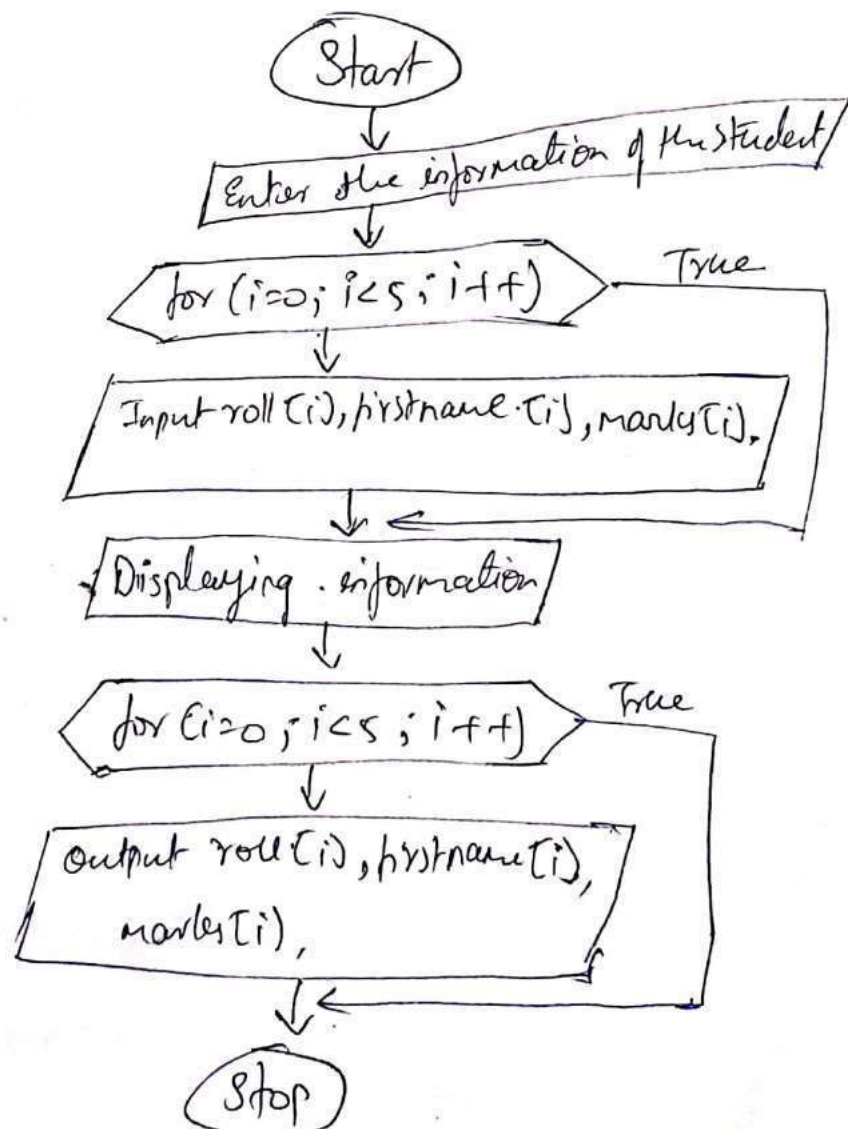 Start
Enter the information of the student
for (i=0; i<5; i++)
True
Input roll[i], firstname.[i], marks[i].
Displaying . information
for (i=0; i<5; i++)
True
Output roll[i], firstname[i],
marks[i],
Stop